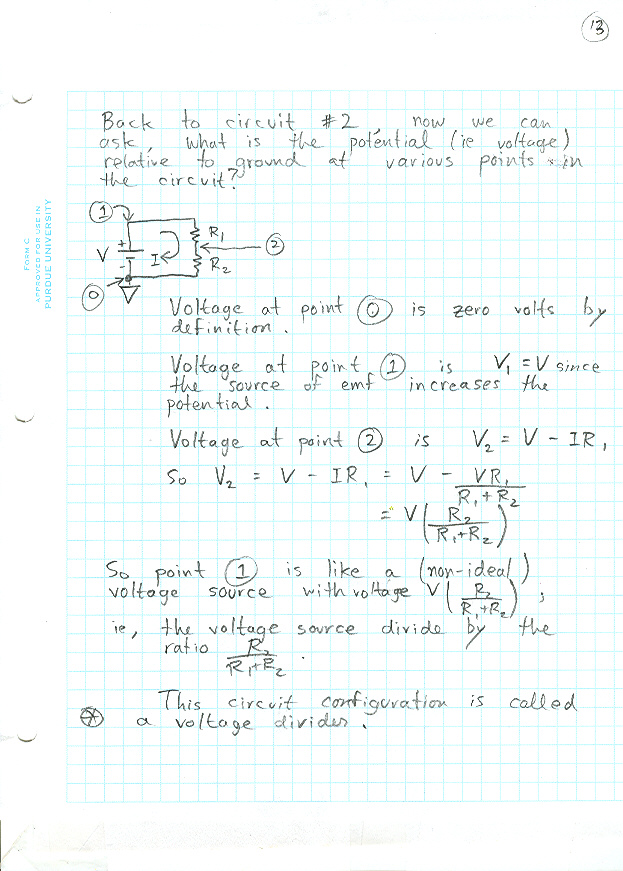 13
Back to circuit #2, now we can
ask, what is the potential (ie voltage)
relative to ground at various points in
the circuit?
FORM C
APPROVED FOR USE IN
PURDUE UNIVERSITY
1
R₁
V + - I 2
R₂
0
Voltage at point 0 is zero volts by
definition.
Voltage at point 1 is V₁ = V since
the source of emf increases the
potential.
Voltage at point 2 is V₂ = V - IR₁
So V₂ = V - IR₁ = V - VR₁/(R₁+R₂)
= V(R₂/(R₁+R₂))
So point 1 is like a (non-ideal)
voltage source with voltage V(R₂/(R₁+R₂));
ie, the voltage source divide by the
ratio R₂/(R₁+R₂).
This circuit configuration is called
* a voltage divider.